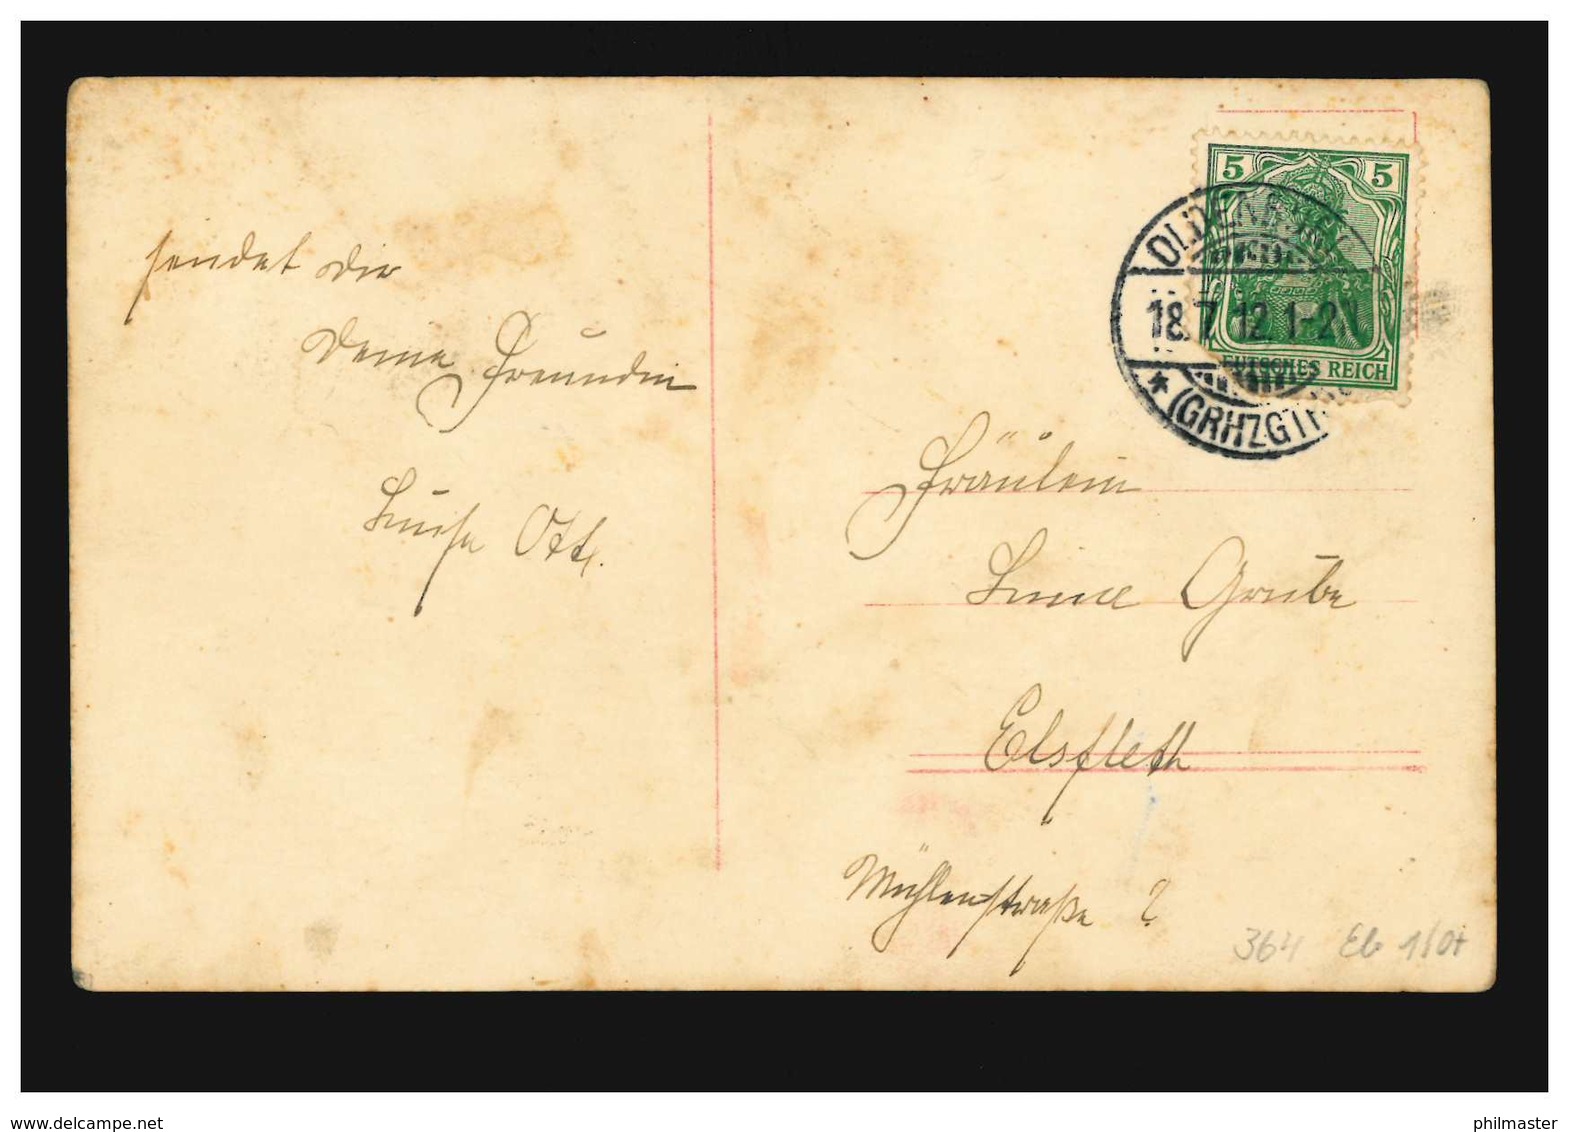 sendet dir
Deine Freundin
Luise Ott.
5 5
DEUTSCHES REICH
OLDENBURG
18.7.12.1-2N
* (GRHZGT
Fräulein
Grube
Elsfleth
Mühlenstraße 2
364 Eb 1/Ot
delcampe.net
philmaster